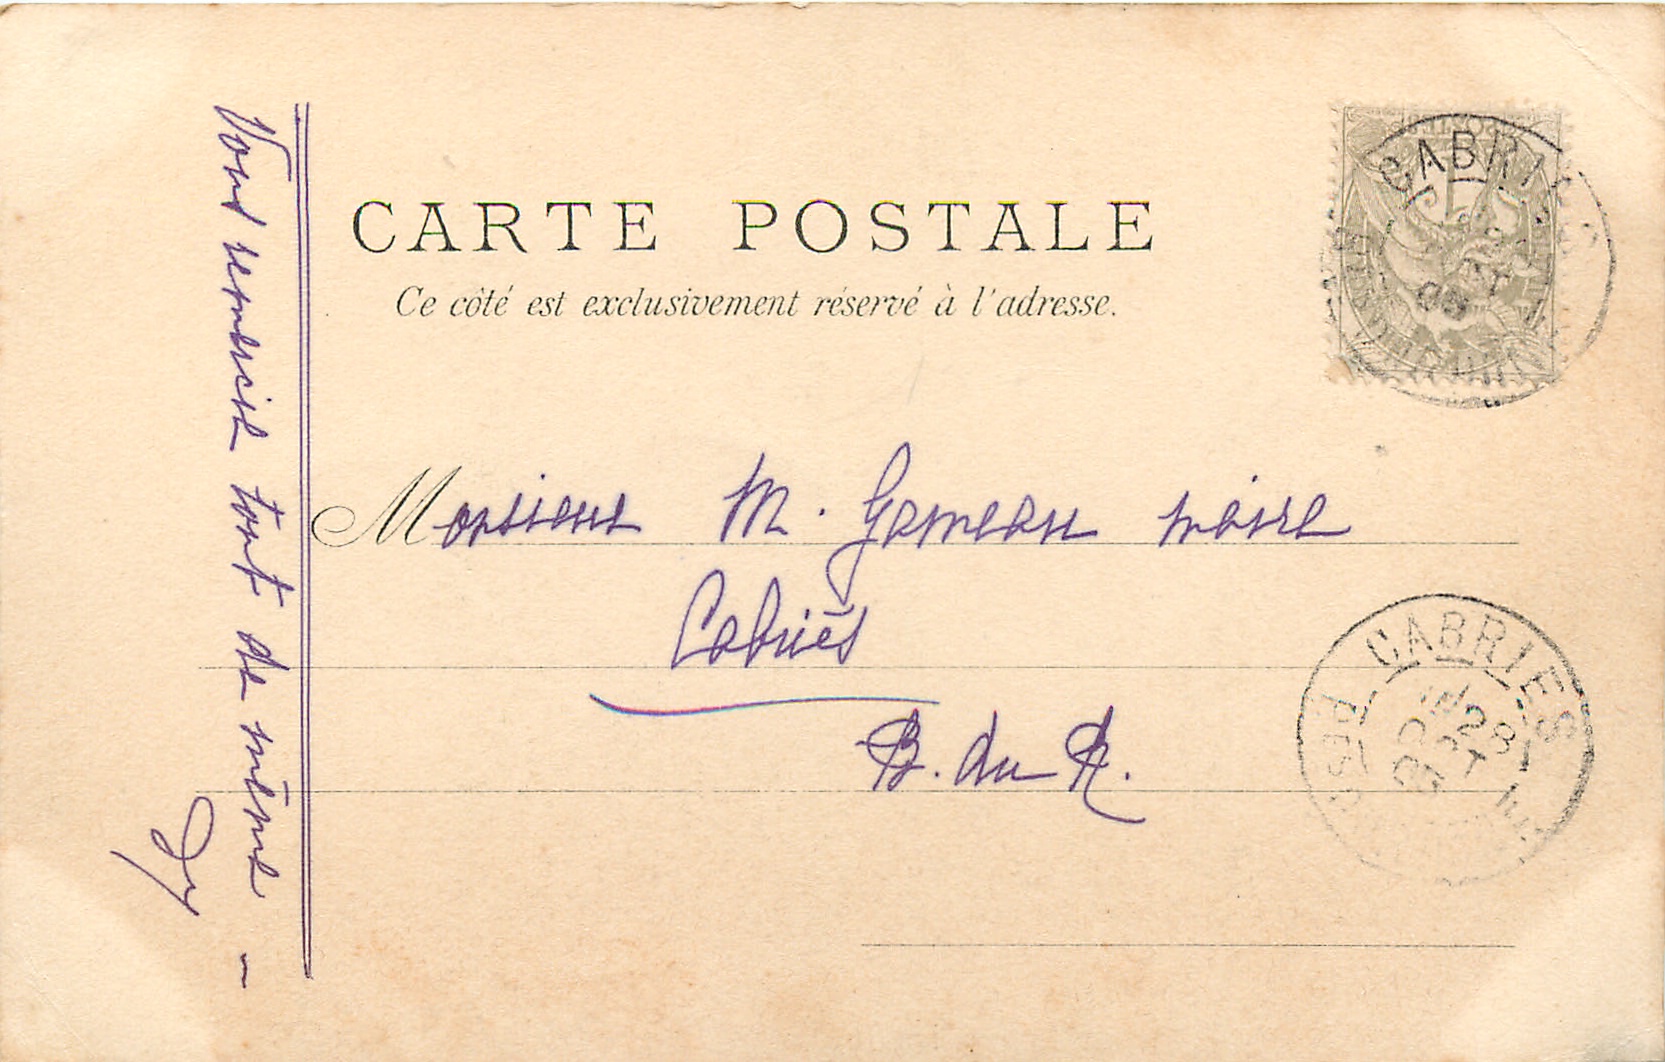 CARTE POSTALE
Ce côté est exclusivement réservé à l'adresse.
Monsieur M. Gameau maire
Cabriès
B. du R.
Vous remercie tout de même –
CABRIES
CABRIES
28
OCT
03